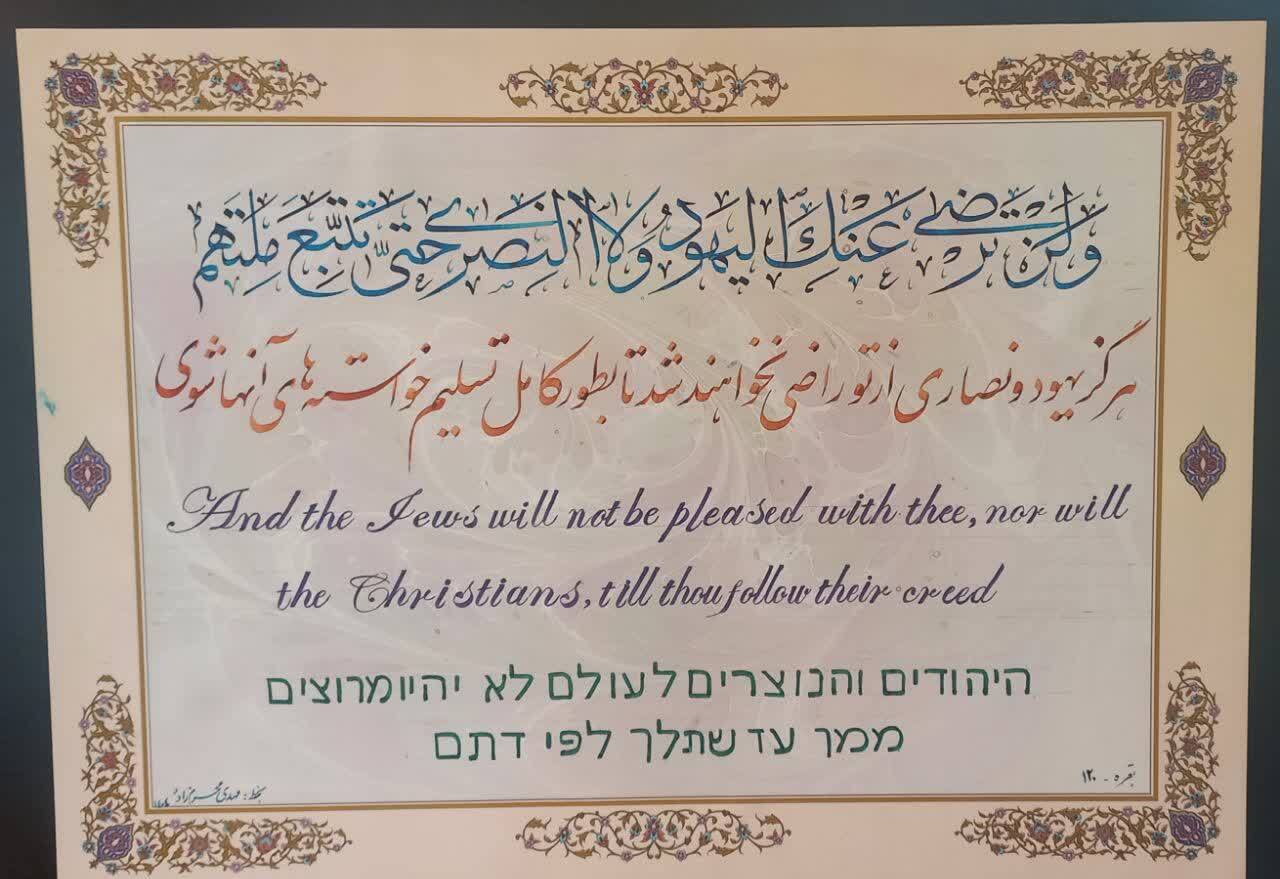 وَلَن تَرضىٰ عَنكَ اليَهودُ وَلاَ النَّصٰرىٰ حَتّىٰ تَتَّبِعَ مِلَّتَهُم
هرگز یهود و نصاری از تو راضی نخواهند شد تا بطور کامل تسلیم خواسته های آنها شوی
And the Jews will not be pleased with thee, nor will
the Christians, till thou follow their creed
היהודים והנוצרים לעולם לא יהיו מרוצים
ממך עד שתלך לפי דתם
بقره - ۱۲۰
بخط: مهدی